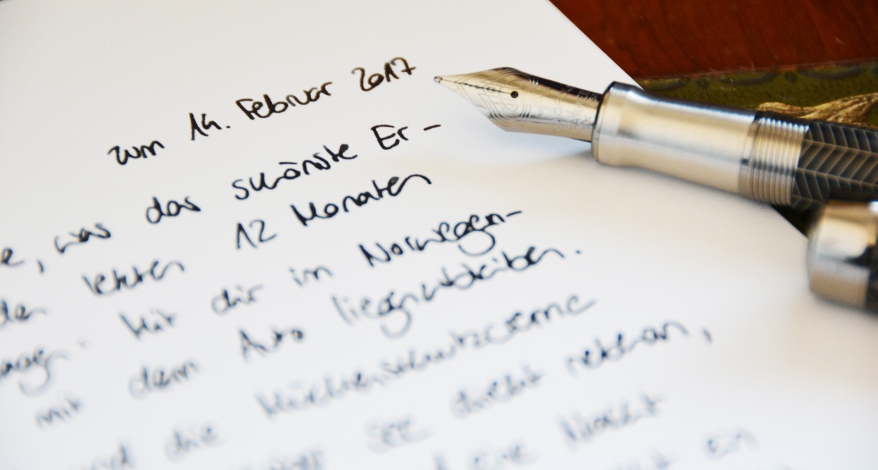 zum 14. Februar 2017
e, was das schönste Er-
den letzten 12 Monaten
Mit dir im Norwegen-
mit dem Auto liegenbleiben.
die Mückenschutzcreme
See direkt nebenan,
eine Nacht